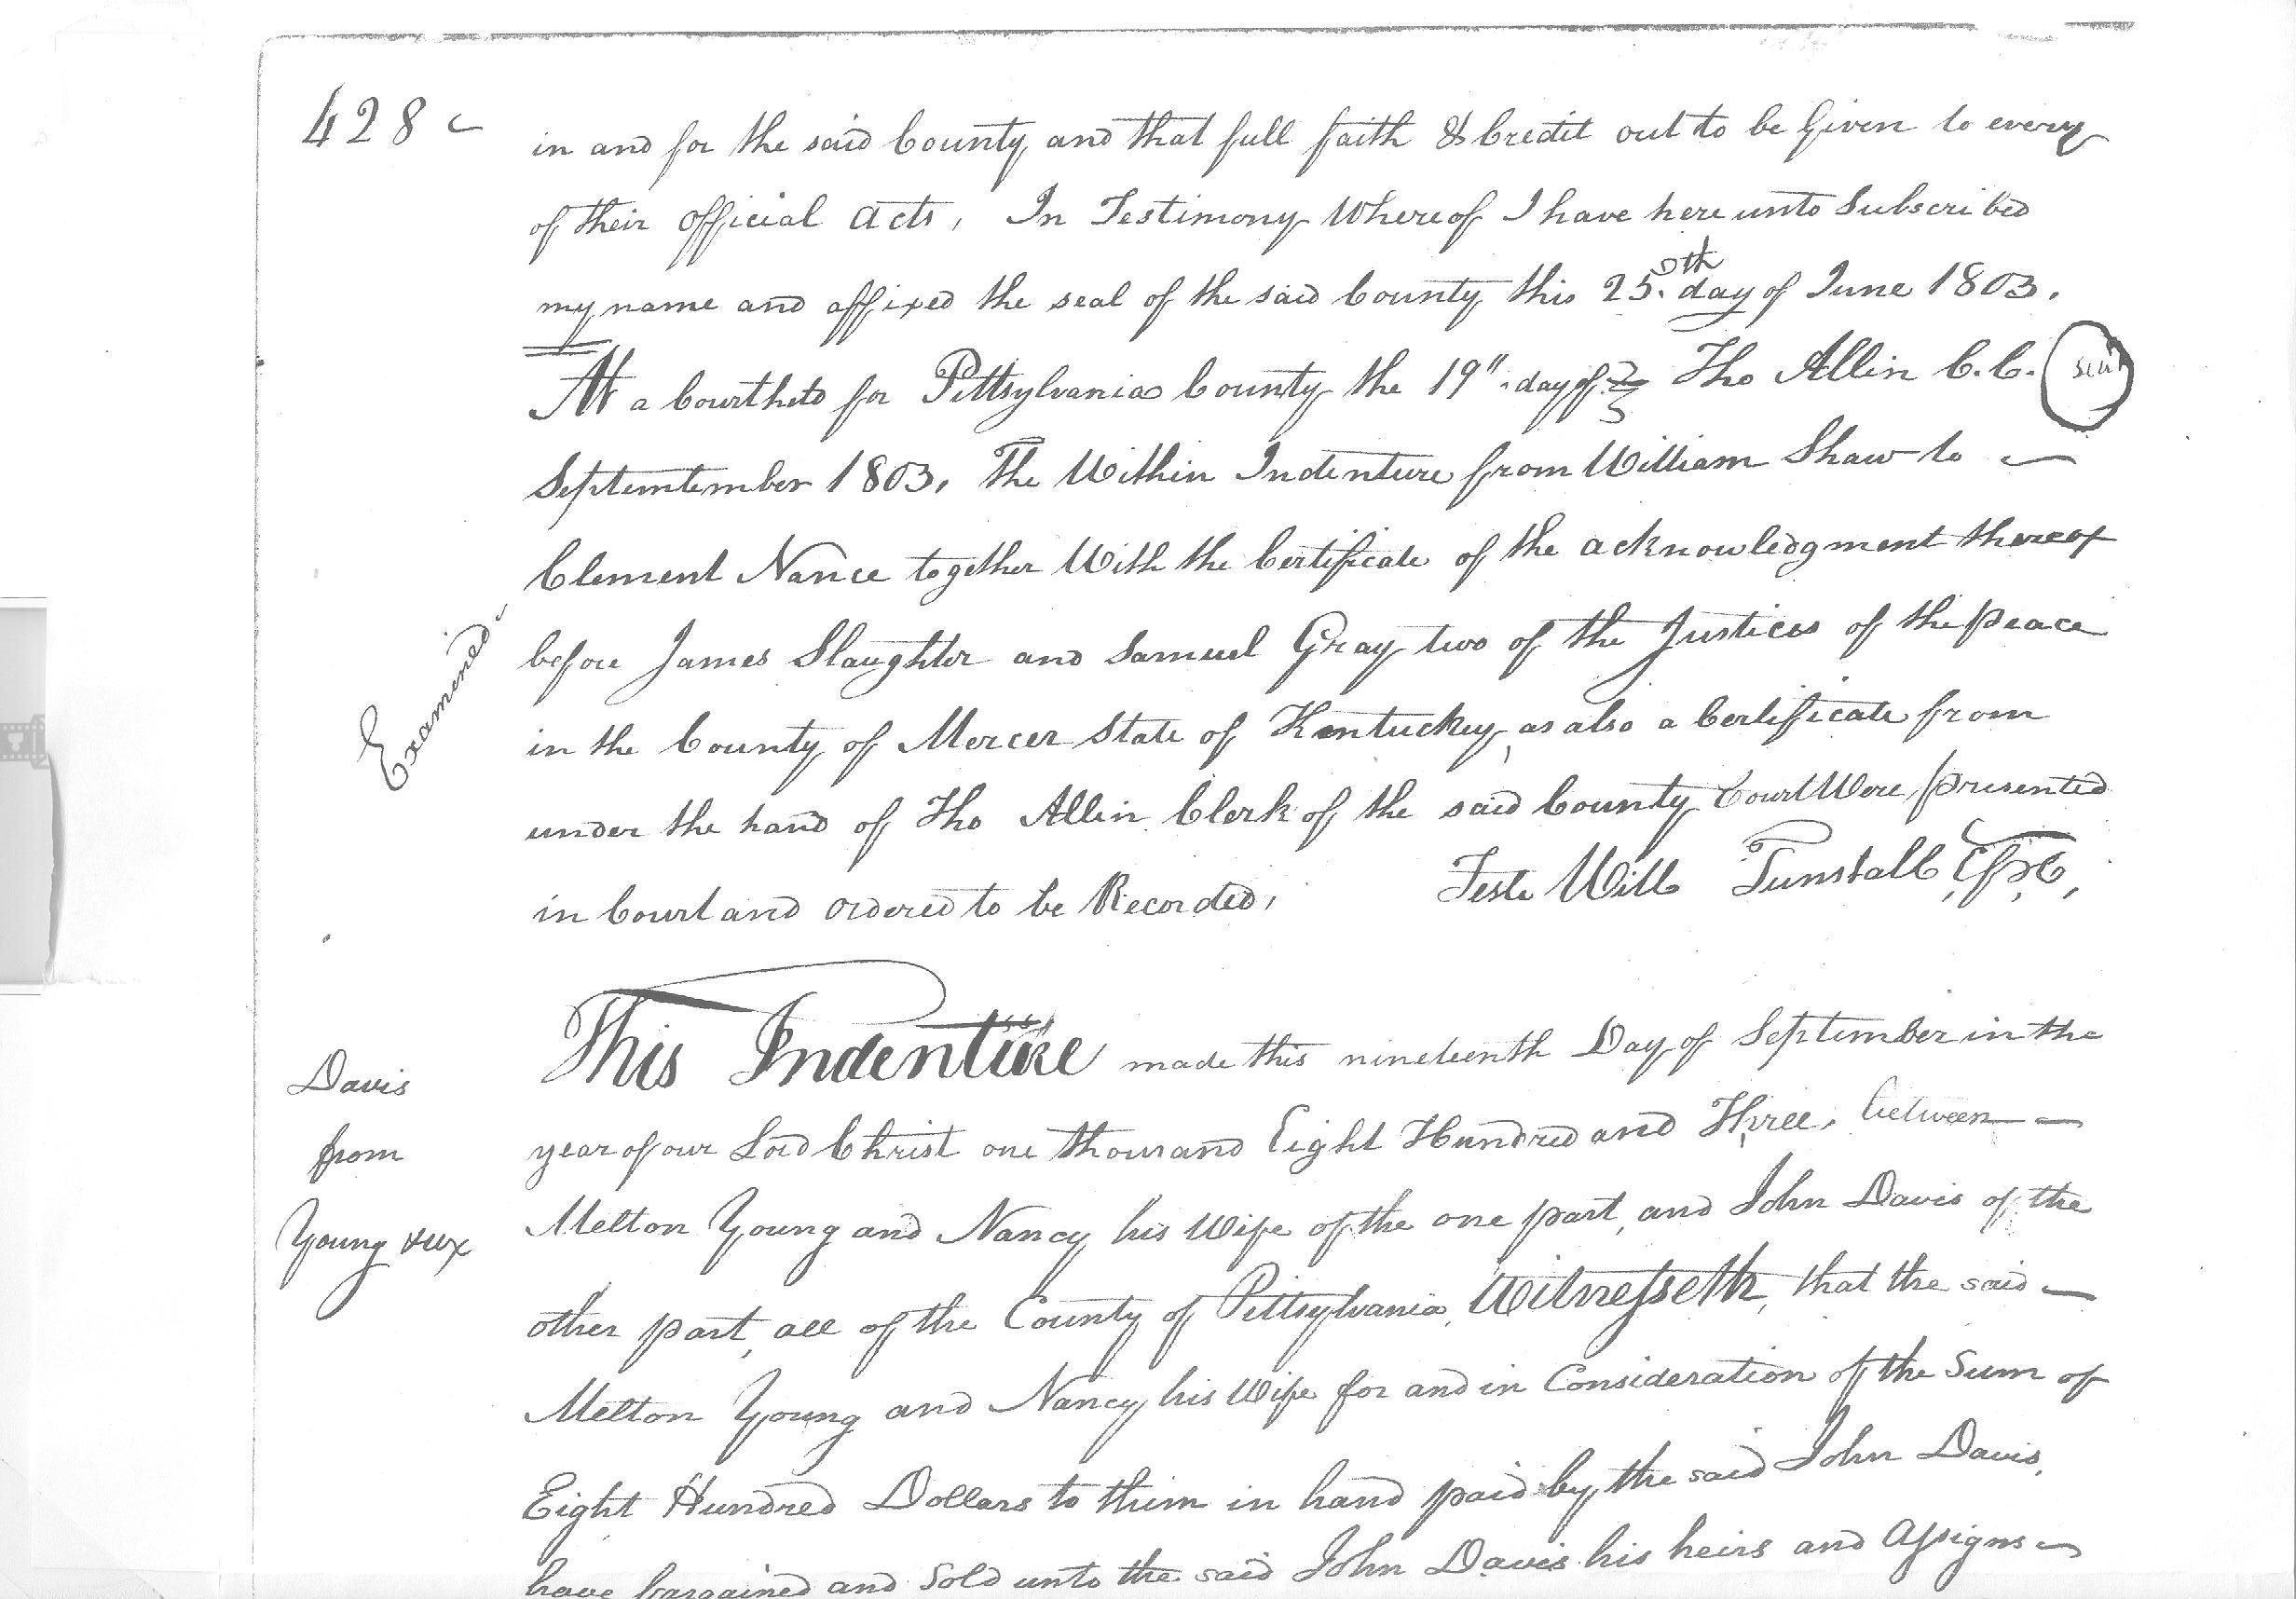 428
in and for the said County and that full faith & Credit out to be Given to every
of their Official Acts, In Testimony Whereof I have here unto Subscribed
my name and affixed the seal of the said County this 25th. day of June 1803.
At a Court held for Pittsylvania County the 19". day of Tho Allin C.C. Seal
Septemtember 1803. The Within Indenture from William Shaw to
Clement Nance together With the Certificate of the acknowledgment thereof
before James Slaughter and Samuel Gray two of the Justices of the peace
in the County of Mercer State of Kentuckey, as also a Certificate from
under the hand of Tho Allin Clerk of the said County Court Were presented
in Court and ordered to be Recorded,
Teste Will Tunstall
Examined
This Indenture made this nineteenth Day of September in the
year of our Lord Christ one thousand Eight Hundred and Three, between
Melton Young and Nancy his Wife of the one part, and John Davis of the
other part, all of the County of Pittsylvania, Witnesseth, that the said
Melton Young and Nancy his Wife for and in Consideration of the Sum of
Eight Hundred Dollars to them in hand paid by the said John Davis,
have bargained and Sold unto the said John Davis his heirs and Assigns
Davis
from
Young &ux